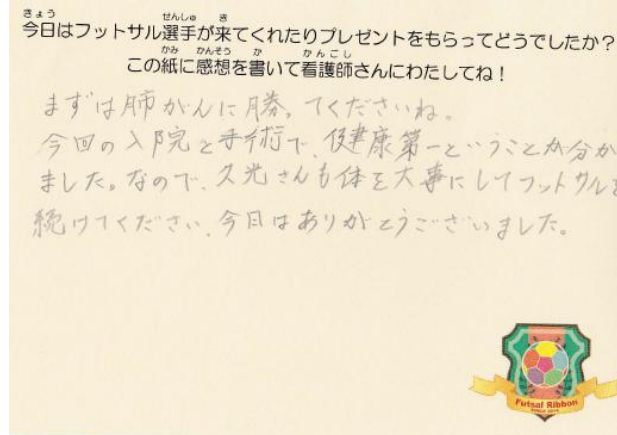 今日はフットサル選手が来てくれたりプレゼントをもらってどうでしたか？
この紙に感想を書いて看護師さんにわたしてね！
まずは肺がんに勝ってくださいね。
今回の入院と手術で、健康第一ということが分か
ました。なので、久光さんも体を大事にしてフットサルを
続けてください。今日はありがとうございました。
Futsal Ribbon